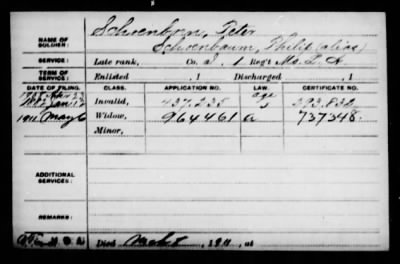 Schoenborn, Peter
NAME OF SOLDIER:
Schoenbaum, Philip (alias)
SERVICE: Late rank, Co. I, 1 Reg't Mo. L. A.
TERM OF SERVICE: Enlisted , 1 Discharged , 1
DATE OF FILING. CLASS. APPLICATION NO. LAW. CERTIFICATE NO.
Invalid, 437.235 age 293.832
1911 May 6 Widow, 964461 a 737348.
Minor,
ADDITIONAL SERVICES:
REMARKS:
Died , 1911, at